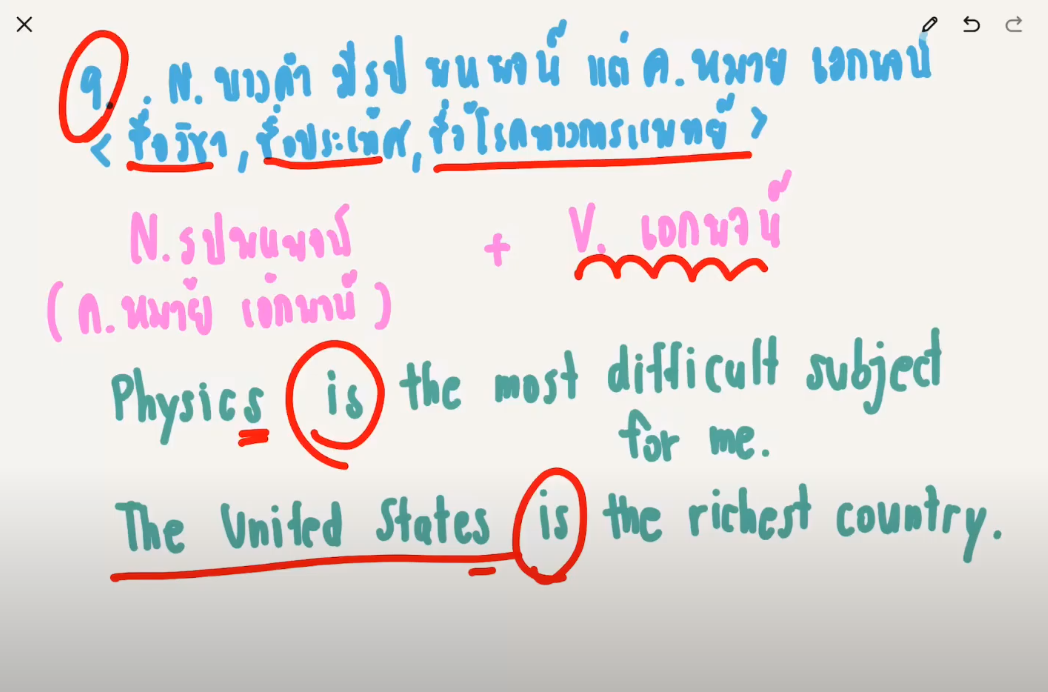 9. N. บางคำ มีรูป พหูพจน์ แต่ ค.หมาย เอกพจน์
< ชื่อวิชา, ชื่อประเทศ, ชื่อโรคทางการแพทย์ >
N. รูปพหูพจน์ + V. เอกพจน์
( ค.หมาย เอกพจน์ )
Physics is the most difficult subject
for me.
The United States is the richest country.